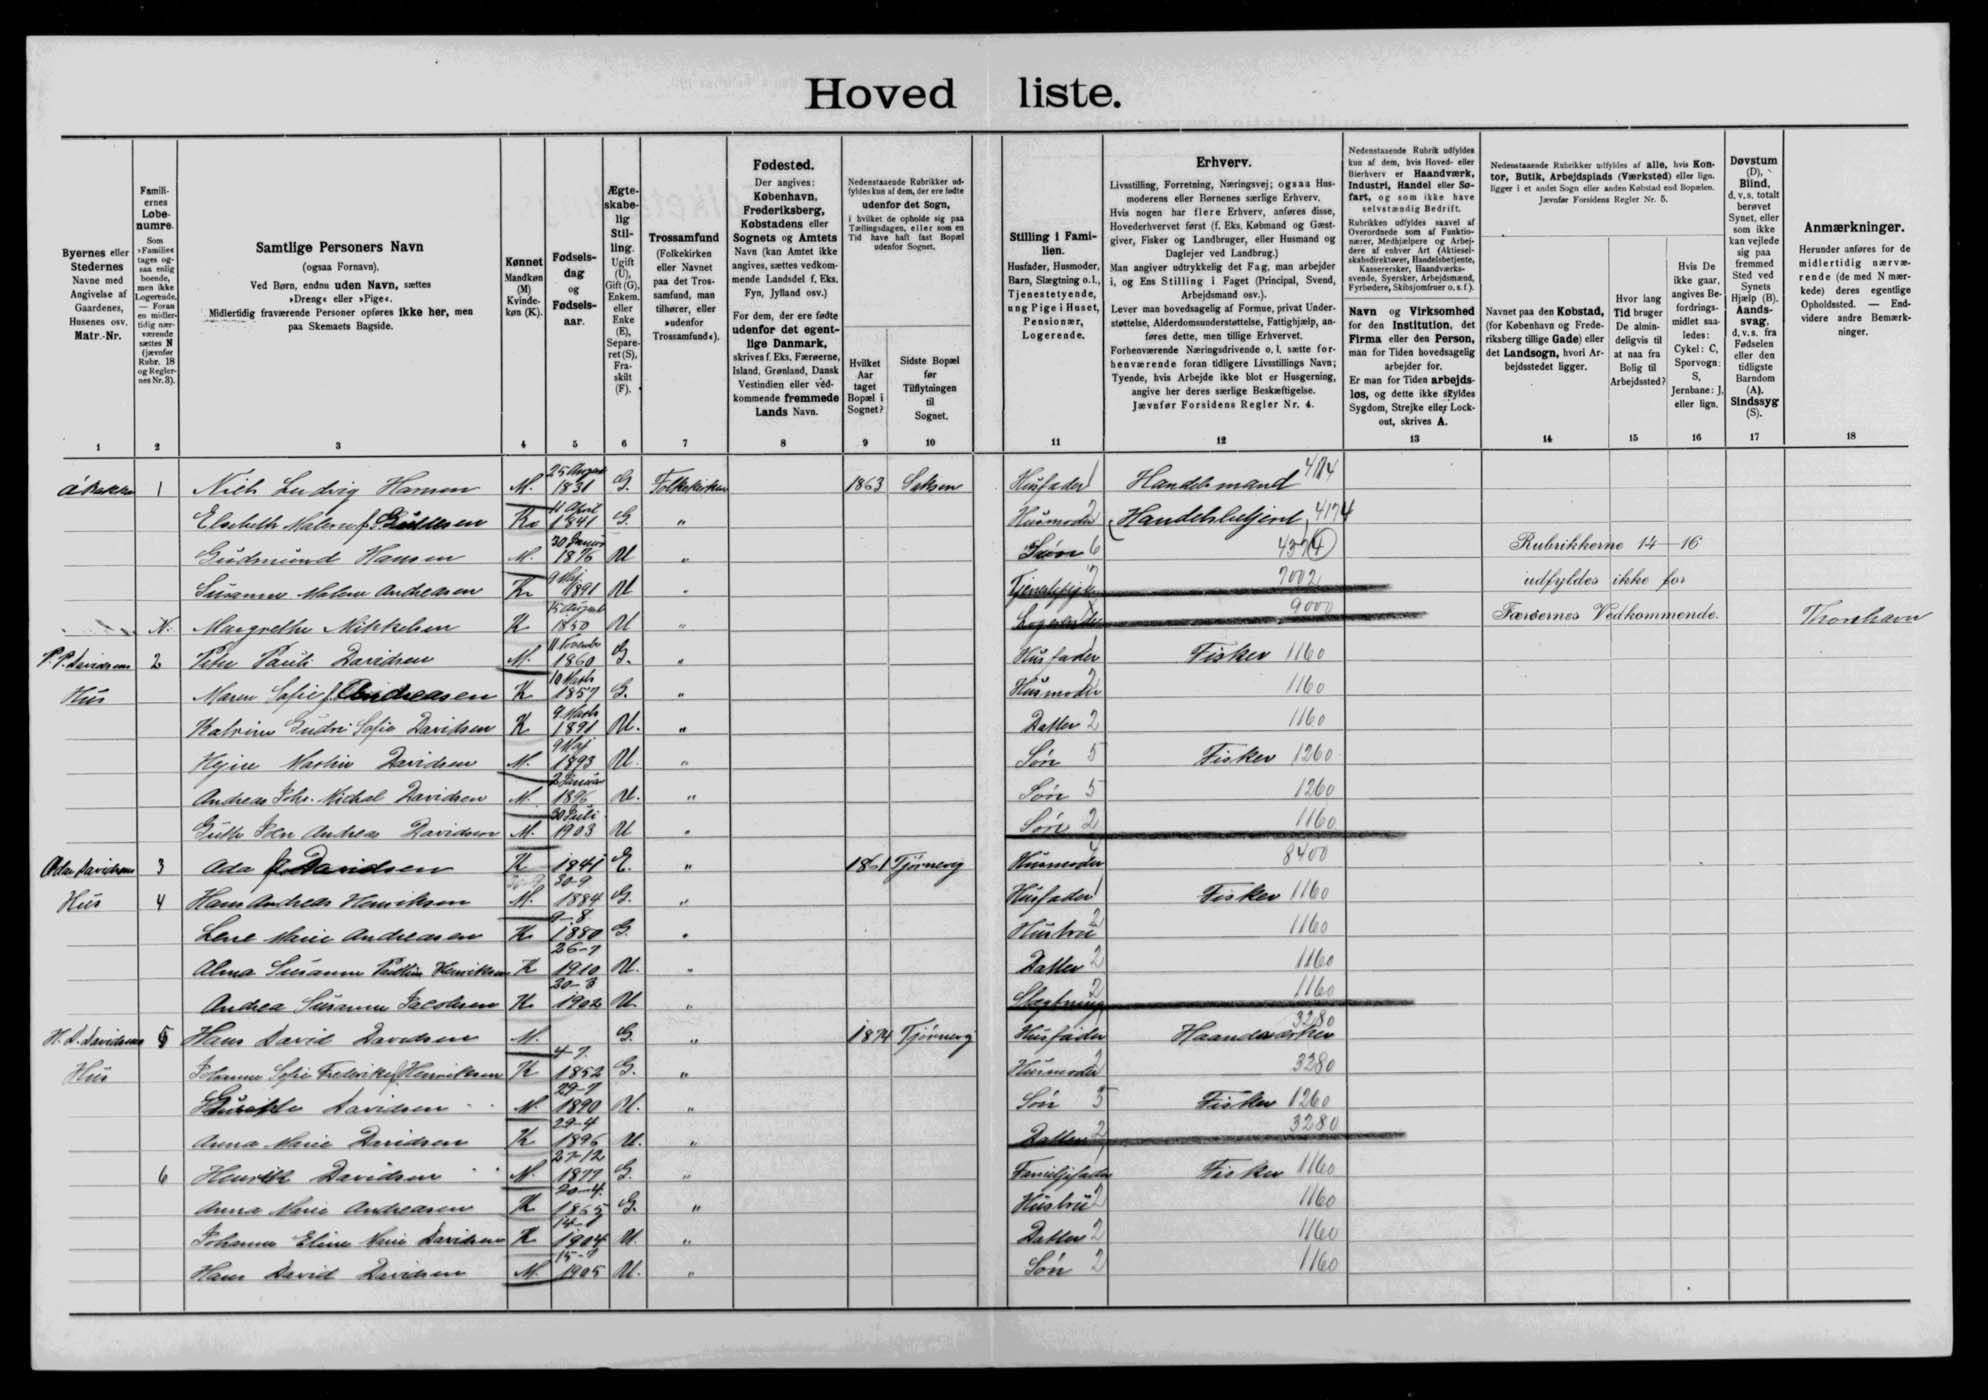 Hoved liste.
Byernes eller Stedernes Navne med Angivelse af Gaardenes, Husenes osv. Matr.-Nr.
Famili-ernes Løbe-numre. Som »Familie« tages og-saa enlig boende, men ikke Logerende. — Foran en midler-tidig nær-værende sættes N (jævnfør Rubr. 18 og Regler-nes Nr. 3).
Samtlige Personers Navn (ogsaa Fornavn). Ved Børn, endnu uden Navn, sættes »Dreng« eller »Pige«. Midlertidig fraværende Personer opføres ikke her, men paa Skemaets Bagside.
Kønnet Mandkøn (M) Kvinde-køn (K).
Fødsels-dag og Fødsels-aar.
Ægte-skabe-lig Stil-ling. Ugift (U), Gift (G), Enkem. eller Enke (E), Separe-ret (S), Fra-skilt (F).
Trossamfund (Folkekirken eller Navnet paa det Tros-samfund, man tilhører, eller »udenfor Trossamfund«).
Fødested. Der angives: København, Frederiksberg, Købstadens eller Sognets og Amtets Navn (kan Amtet ikke angives, sættes vedkom-mende Landsdel f. Eks. Fyn, Jylland osv.) For dem, der ere fødte udenfor det egent-lige Danmark, skrives f. Eks. Færøerne, Island, Grønland, Dansk Vestindien eller ved-kommende fremmede Lands Navn.
Nedenstaaende Rubrikker ud-fyldes kun af dem, der ere fødte udenfor det Sogn, i hvilket de opholde sig paa Tællingsdagen, eller som en Tid have haft fast Bopæl udenfor Sognet.
Hvilket Aar taget Bopæl i Sognet?
Sidste Bopæl før Tilflytningen til Sognet.
Stilling i Fami-lien. Husfader, Husmoder, Barn, Slægtning o. l., Tjenestetyende, ung Pige i Huset, Pensionær, Logerende.
Erhverv. Livsstilling, Forretning, Næringsvej; ogsaa Hus-moderens eller Børnenes særlige Erhverv. Hvis nogen har flere Erhverv, anføres disse, Hovederhvervet først (f. Eks. Købmand og Gæst-giver, Fisker og Landbruger, eller Husmand og Daglejer ved Landbrug.) Man angiver udtrykkelig det Fag, man arbejder i, og Ens Stilling i Faget (Principal, Svend, Arbejdsmand osv.). Lever man hovedsagelig af Formue, privat Under-støttelse, Alderdomsunderstøttelse, Fattighjælp, an-føres dette, men tillige Erhvervet. Forhenværende Næringsdrivende o. l. sætte for-henværende foran tidligere Livsstillings Navn; Tyende, hvis Arbejde ikke blot er Husgerning, angive her deres særlige Beskæftigelse. Jævnfør Forsidens Regler Nr. 4.
Nedenstaaende Rubrik udfyldes kun af dem, hvis Hoved- eller Bierhverv er Haandværk, Industri, Handel eller Sø-fart, og som ikke have selvstændig Bedrift. Rubrikken udfyldes saavel af Overordnede som af Funktio-nærer, Medhjælpere og Arbej-dere af enhver Art (Aktiesel-skabsdirektører, Handelsbetjente, Kasserersker, Haandværks-svende, Syersker, Arbejdsmænd, Fyrbødere, Skibsjomfruer o. s. f.).
Navn og Virksomhed for den Institution, det Firma eller den Person, man for Tiden hovedsagelig arbejder for. Er man for Tiden arbejds-løs, og dette ikke skyldes Sygdom, Strejke eller Lock-out, skrives A.
Nedenstaaende Rubrikker udfyldes af alle, hvis Kon-tor, Butik, Arbejdsplads (Værksted) eller lign. ligger i et andet Sogn eller anden Købstad end Bopælen. Jævnfør Forsidens Regler Nr. 5.
Navnet paa den Købstad, (for København og Frede-riksberg tillige Gade) eller det Landsogn, hvori Ar-bejdsstedet ligger.
Hvor lang Tid bruger De almin-deligvis til at naa fra Bolig til Arbejdssted?
Hvis De ikke gaar, angives Be-fordrings-midlet saa-ledes: Cykel: C, Sporvogn: S, Jernbane: J, eller lign.
Døvstum (D), Blind, d. v. s. totalt berøvet Synet, eller som ikke kan vejlede sig paa fremmed Sted ved Synets Hjælp (B). Aands-svag, d. v. s. fra Fødselen eller den tidligste Barndom (A). Sindssyg (S).
Anmærkninger. Herunder anføres for de midlertidig nærvæ-rende (de med N mær-kede) deres egentlige Opholdssted. — End-videre andre Bemærk-ninger.
1 2 3 4 5 6 7 8 9 10 11 12 13 14 15 16 17 18
á Bakka 1 Niels Ludvig Hansen M. 25 August 1831 G. Folkekirken 1863 Saksen Husfader 1 Handelsmand 4174
Elsebeth Malene f. K. 11 April 1841 G. " Husmoder 2 (Handelsbetjent, 4174
Gudmund Hansen M. 30 Januar 1876 U " Søn 6 4374 Rubrikkerne 14-16
Susanne Malene Andreasen K. 9 Maj 1891 U " 2 7002 udfyldes ikke for
N. Margrethe Mikkelsen K 15 August 1850 U " Logerende 9000 Færøernes Vedkommende. Thorshavn
P. P. Davidsens 2 Peter Pauli Davidsen M. 1860 G. " Husfader 1 Fisker 1160
Hus Maren Sofie f. Andreasen K 10 Marts 1857 G. " Husmoder 2 1160
Katrine Gudri Sofie Davidsen K 9 Marts 1891 U. " Datter 2 1160
Martin Davidsen M. 9 Maj 1893 U. " Søn 5 Fisker 1260
Andreas Johs. Michal Davidsen M. 2 Januar 1896 U. " Søn 5 1260
Andreas Davidsen M. 30 Juli 1903 U " Søn 2 1160
Adas Davidsens 3 Ada f. Davidsen K 1841 E. " 1861 Tjørnevig Husmoder 8400
Hus 4 Hans Andreas Henriksen M. 30-9 1884 G. " Husfader 1 Fisker 1160
Lene Marie Andreasen K. 9-8 1880 G. " Hustru 2 1160
Alma Susanne Henriksen K 26-7 1910 U. " Datter 2 1160
Andrea Susanne Jacobsen K. 20-3 1902 U. " Slægtning 2 1160
H. D. Davidsens 5 Hans David Davidsen M. G. " 1874 Tjørnevig Husfader 1 Haandværker 3280
Hus Johanne Sofie Frederikke f. Henriksen K 4-7 1852 G. " Husmoder 2 3280
Davidsen M. 29-7 1890 U. " Søn 5 Fisker 1260
Anna Marie Davidsen K 29-4 1896 U. " Datter 2 3280
6 Henrik Davidsen M. 27-12 1877 G. " Familjefader 1 Fisker 1160
Anna Marie Andreasen K 20-4 G. " Hustru 2 1160
Johanne Eline Marie Davidsen K 1904 U. " Datter 2 1160
Hans David Davidsen M. 15-7 1905 U. " Søn 2 1160